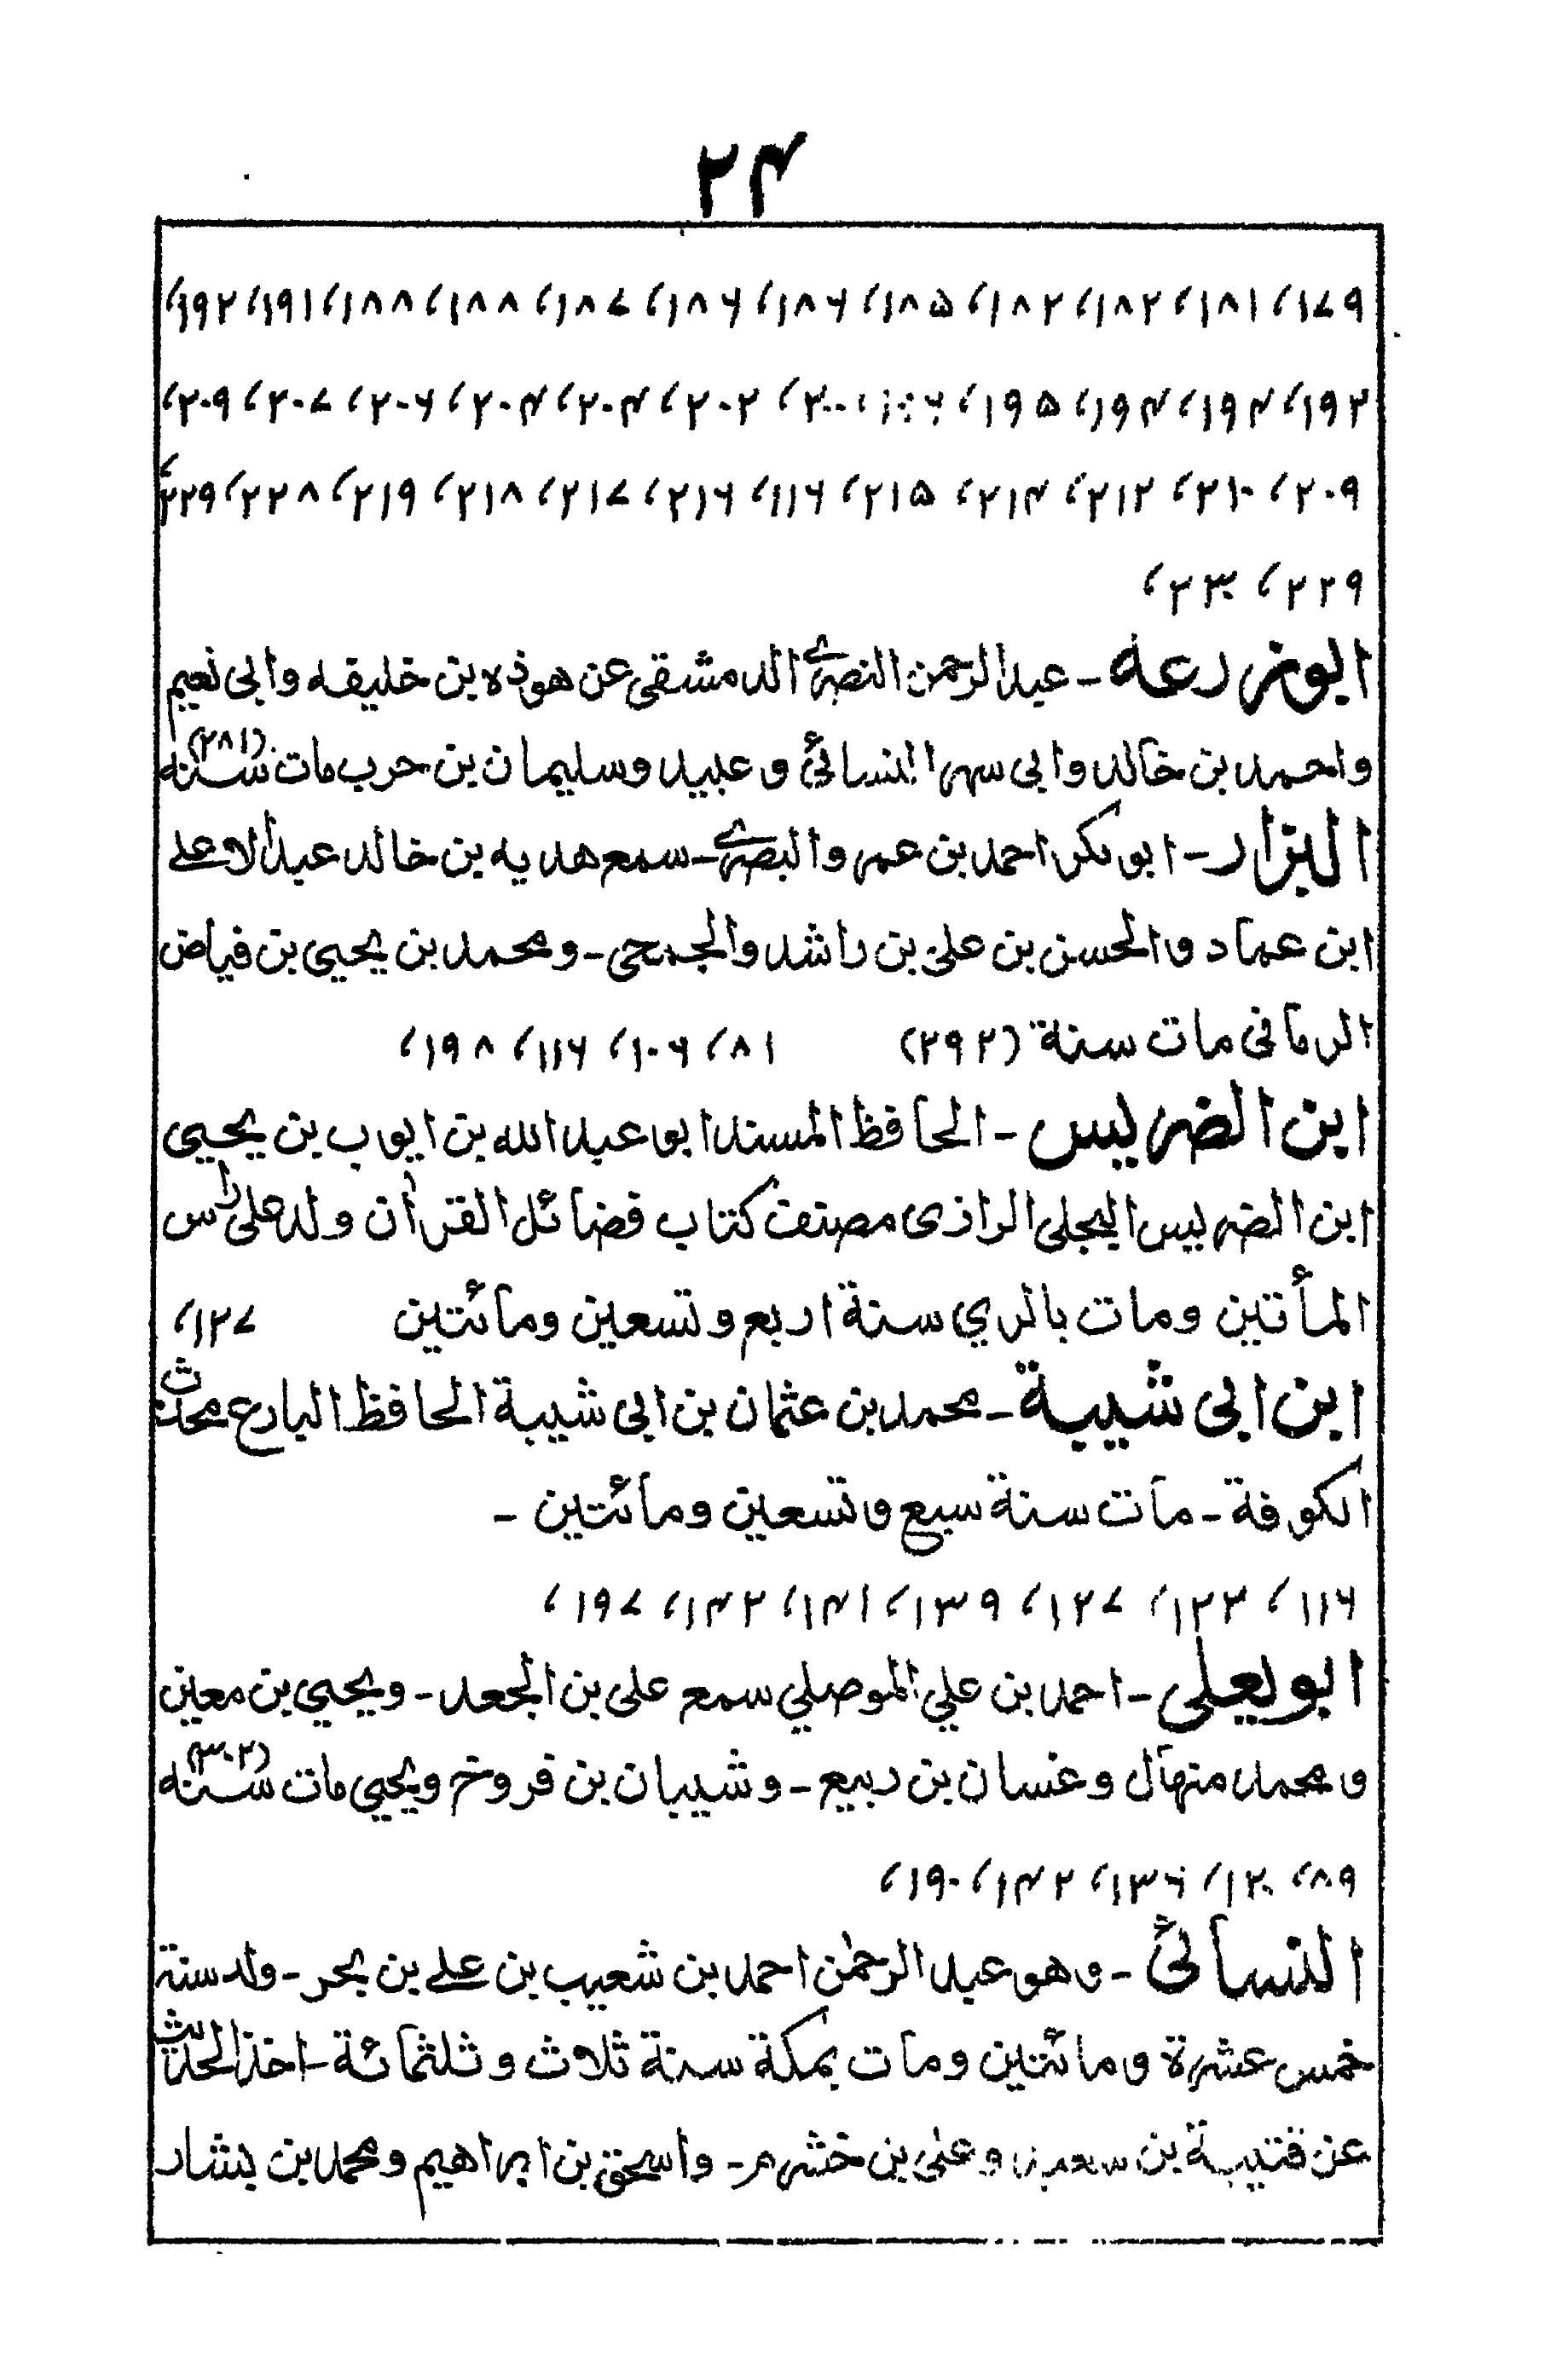 ۲۴
۱۷۹، ۱۸۱، ۱۸۲، ۱۸۲، ۱۸۵، ۱۸۶، ۱۸۶، ۱۸۷، ۱۸۸، ۱۸۸، ۱۹۱، ۱۹۲،
۱۹۳، ۱۹۴، ۱۹۴، ۱۹۵، ۲۰۰، ۲۰۲، ۲۰۴، ۲۰۴، ۲۰۶، ۲۰۷، ۲۰۹،
۲۰۹، ۲۱۰، ۲۱۲، ۲۱۴، ۲۱۵، ۱۱۶، ۲۱۶، ۲۱۷، ۲۱۸، ۲۱۹، ۲۲۸، ۲۲۹،
۲۲۹، ۲۳۰،
ابوزرعه - عبدالرحمن النصرے الدمشقی عن هوذه بن خلیفه وابی نعیم
واحمد بن خالد وابی سهر النسائی و عبید وسلیمان بن حرب مات سنه (۲۸۱)
البزار - ابوبکر احمد بن عمرو البصرے - سمع هدیه بن خالد عبدالاعلے
ابن عماد و الحسن بن علی بن راشد والجمحی - ومحمد بن یحیی بن فیاض
الرمانی مات سنة (۲۹۲) ۸۱، ۱۰۶، ۱۱۶، ۱۹۸،
ابن الضریس - الحافظ المسند ابو عبدالله بن ایوب بن یحیی
ابن الضریس البجلی الرازی مصنف کتاب فضائل القرآن ولد علی راس
المأتین ومات بالري سنة اربع وتسعین ومائتین ۱۲۷،
ابن ابی شیبة - محمد بن عثمان بن ابی شیبة الحافظ البارع محدث
الکوفة - مات سنة سبع وتسعین ومائتین -
۱۱۶، ۱۲۳، ۱۲۷، ۱۳۹، ۱۴۱، ۱۴۳، ۱۹۷،
ابو یعلی - احمد بن علي الموصلي سمع علی بن الجعد - ویحیي بن معین
و محمد منهال وغسان بن ربیع - وشیبان بن فروخ ویحیی مات سنه (۳۰۲)
۸۹، ۱۲۰، ۱۳۶، ۱۴۲، ۱۹۰،
النسائی - وهو عبد الرحمٰن احمد بن شعیب بن علے بن بحر - ولد سنة
خمس عشرة و مائتین ومات بمکة سنة ثلاث وثلثمائة - اخذ الحدیث
عن قتیبة بن سعید وعلی بن خشرم - واسحق بن ابراهیم ومحمد بن بشار